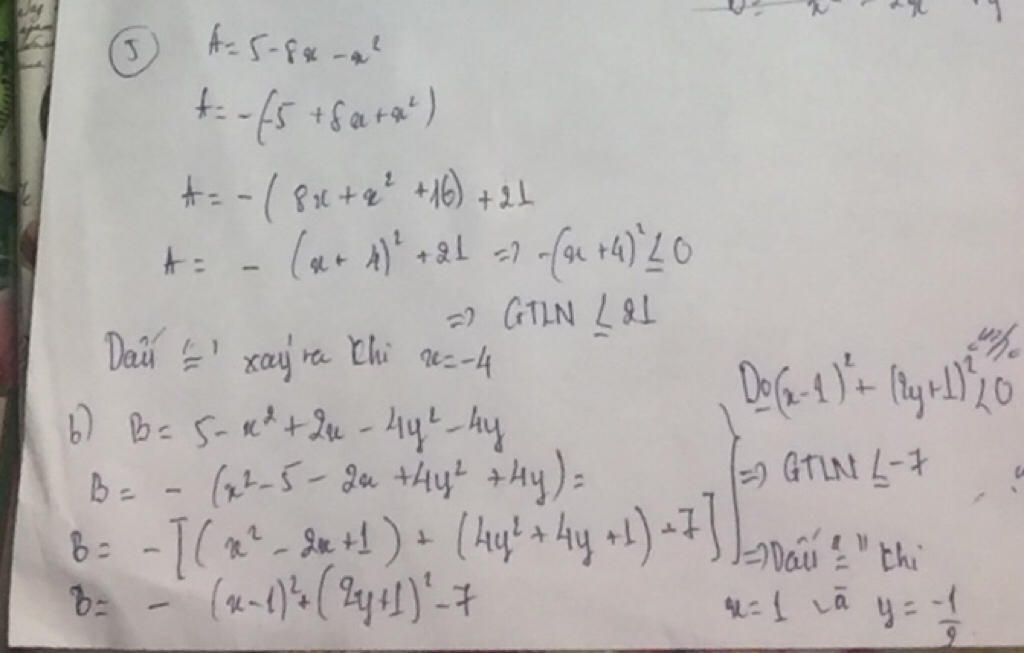 ⑤ A = 5 - 8x - x²
A = -(-5 + 8x + x²)
A = -( 8x + x² + 16) + 21
A = - (x + 4)² + 21 => -(x + 4)² ≤ 0
=> GTLN ≤ 21
Dấu "=" xảy ra khi x = -4
b) B = 5 - x² + 2x - 4y² - 4y
B = - (x² - 5 - 2x + 4y² + 4y) =
B = - [(x² - 2x + 1) + (4y² + 4y + 1) - 7]
B = - (x - 1)² + (2y + 1)² - 7
Do (x - 1)² + (2y + 1)² ≤ 0
=> GTLN ≤ -7
=> Dấu "=" khi
x = 1 và y = -1/2